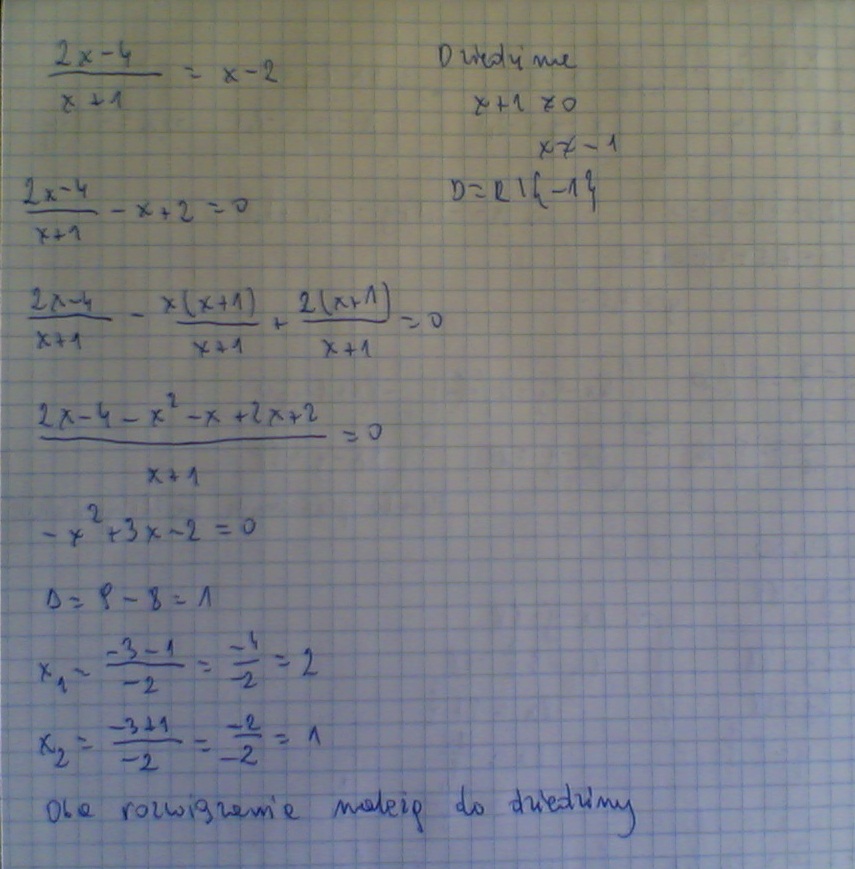 2x-4/x+1 = x-2
Dziedzina
x+1 ≠ 0
x ≠ -1
D = R \ {-1}
2x-4/x+1 - x+2 = 0
2x-4/x+1 - x(x+1)/x+1 + 2(x+1)/x+1 = 0
2x-4-x²-x+2x+2/x+1 = 0
-x²+3x-2 = 0
Δ = 9-8 = 1
x₁ = -3-1/-2 = -4/-2 = 2
x₂ = -3+1/-2 = -2/-2 = 1
Oba rozwiązania należą do dziedziny